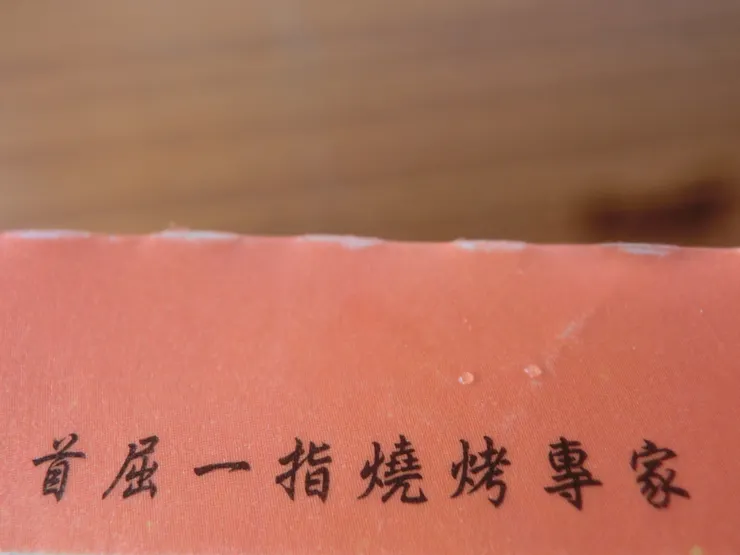 首屈一指燒烤專家